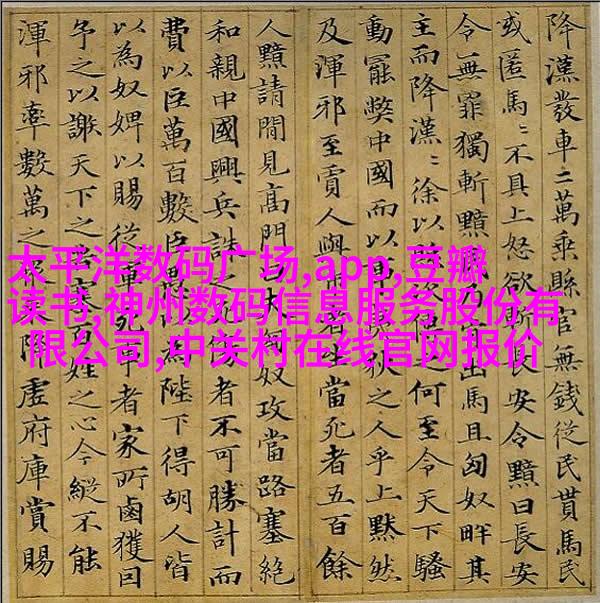 降漢發車二萬乘縣官無錢從民貰馬民
或匿馬〻不具上怒欲斬長安令黯曰長安
令無罪獨斬黯乃出馬且匈奴畔其
主而降漢〻徐以之何至令天下騷
動罷獘中國而以之人乎上默然
及渾邪至賈人與市者坐當死者五百餘
人黯請閒見高門匈奴攻當路塞絕
和親中國興兵誅之者不可勝計而
費以巨萬百數臣愚以為陛下得胡人皆
以為奴婢以賜從軍死事者家所鹵獲因
予之以謝天下之百姓之心今縱不能
渾邪率數萬之降虛府庫賞賜
太平洋数码广场,app,豆瓣
读书,神州数码信息服务股份有
限公司,中关村在线官网报价